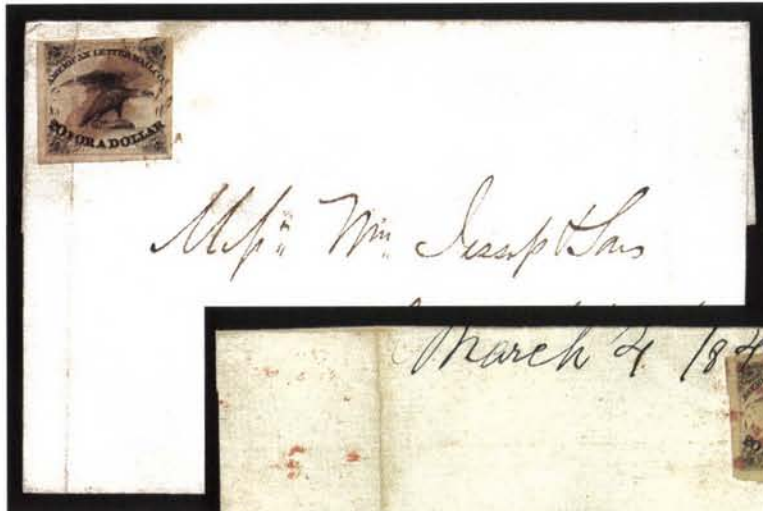 AMERICAN LETTER MAIL CO.
20 FOR A DOLLAR
Messrs Wm Jessop & Sons
March 4 184